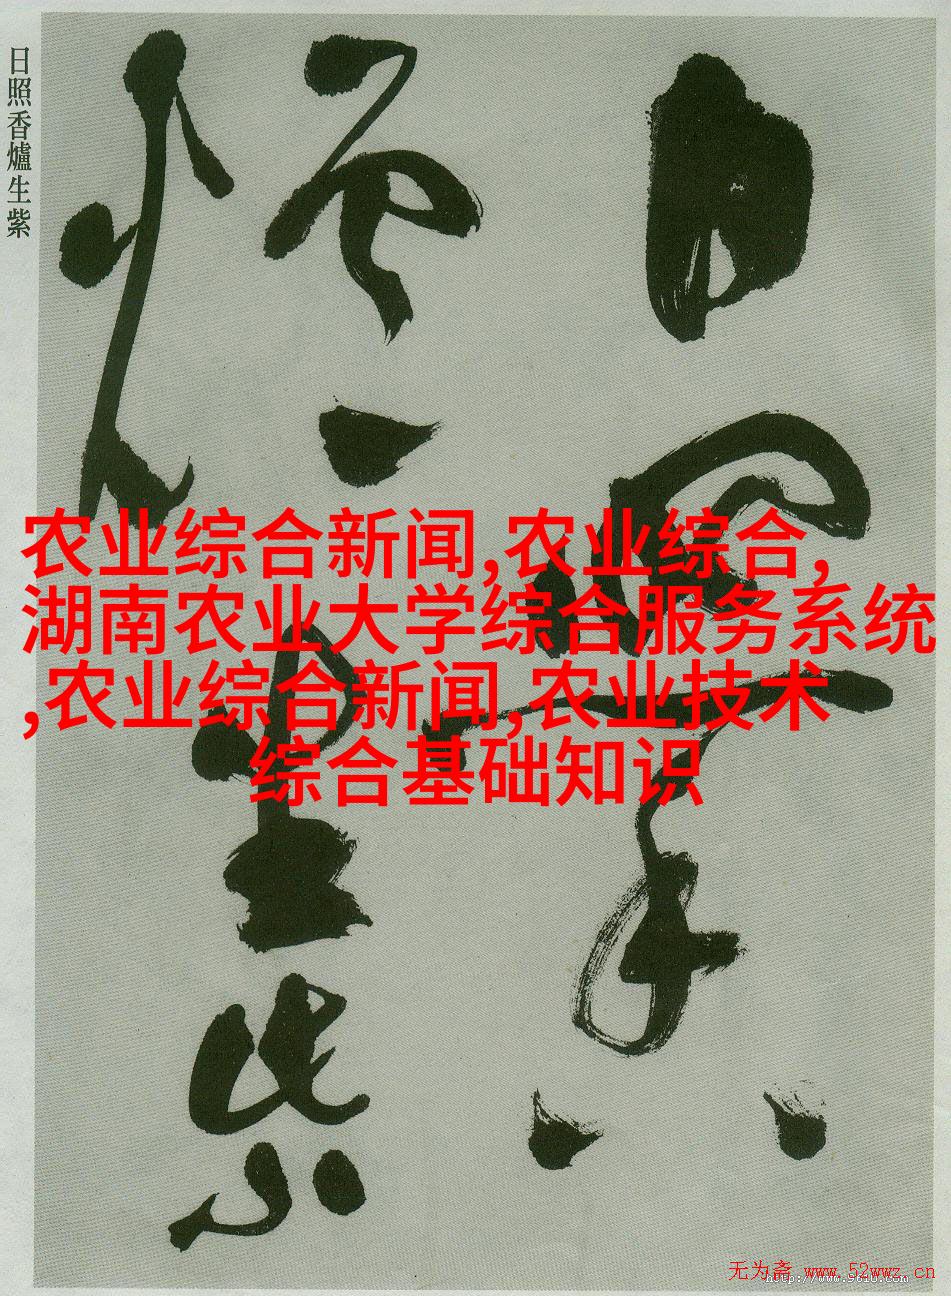 日照香爐生紫
日照香
爐生紫
农业综合新闻,农业综合,
湖南农业大学综合服务系统
,农业综合新闻,农业技术
综合基础知识
无为斋 www.52wwz.cn
http://www.9610.com